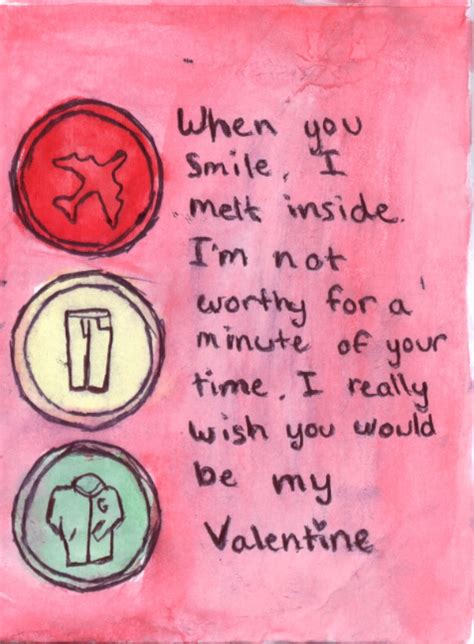 When you
Smile, I
melt inside.
I'm not
worthy for a
minute of your
time. I really
wish you would
be my
Valentine
G